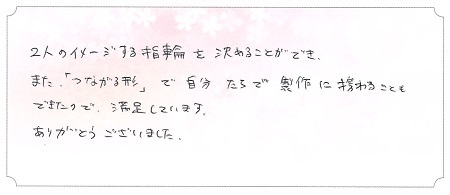 2人のイメージする指輪を決めることができ、
また、「つながる形」で自分たちで製作に携わることも
できたので、満足しています。
ありがとうございました。